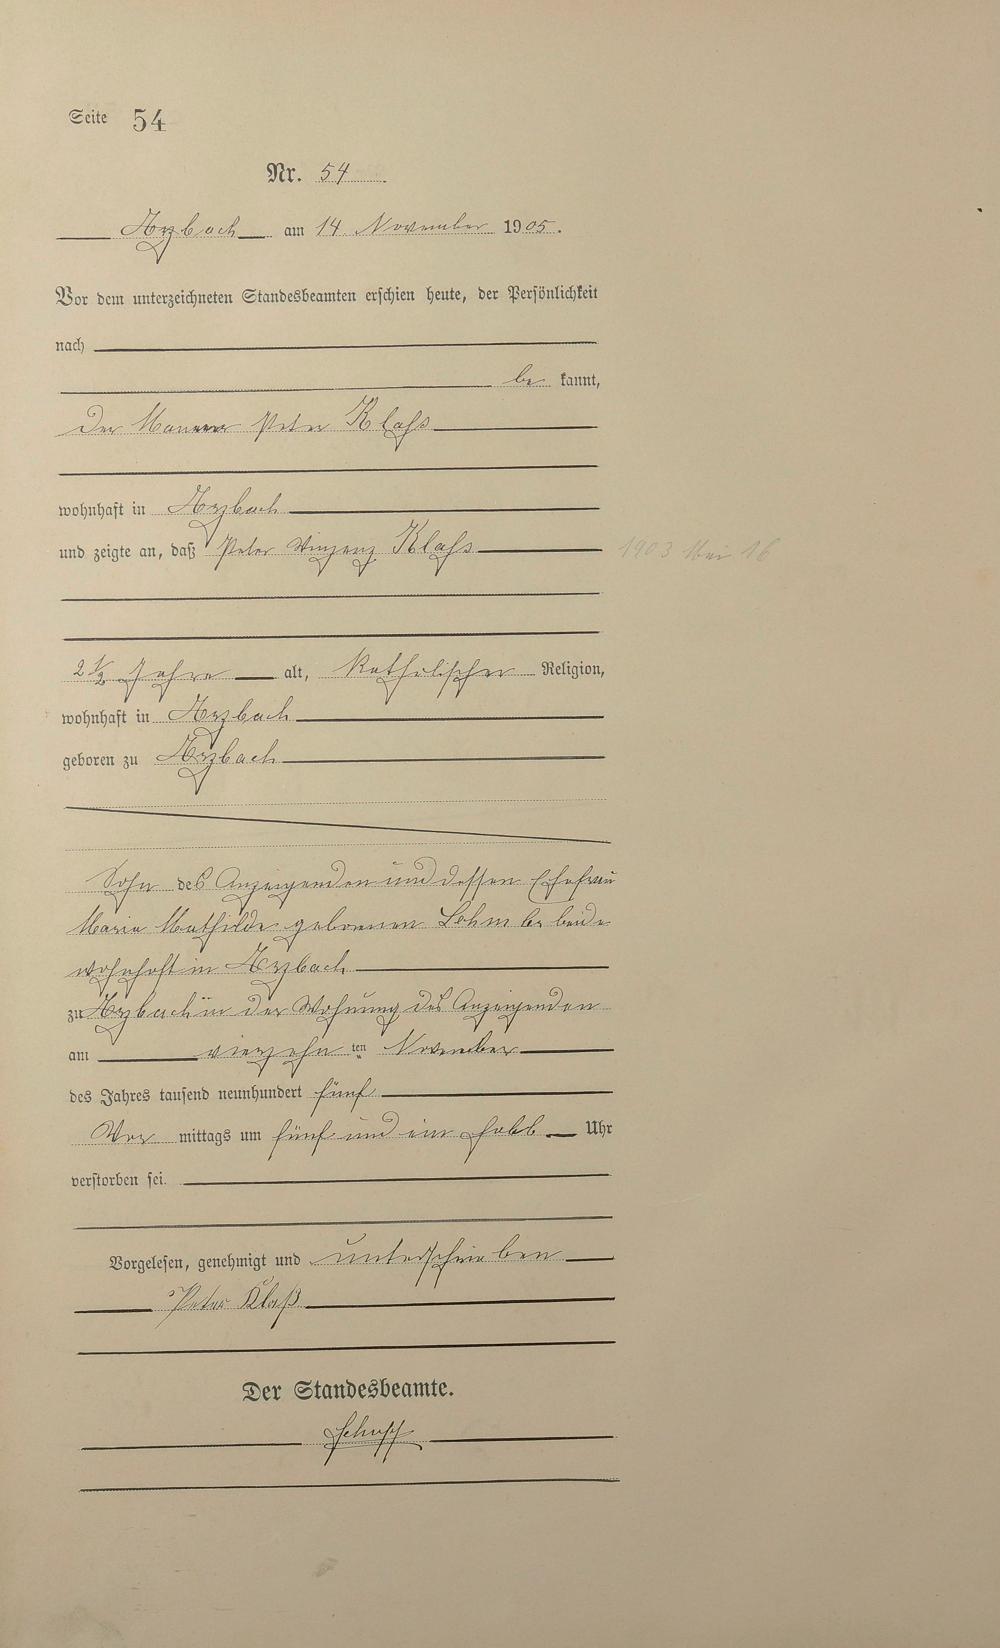 Seite 54
Nr. 54
Arzbach am 14 November 1905.
Vor dem unterzeichneten Standesbeamten erschien heute, der Persönlichkeit
nach
be kannt,
der Maurer Peter Klaß
wohnhaft in Arzbach
und zeigte an, daß Peter Vinzenz Klaß
1903 Mai 16
2 1/2 Jahre alt, katholischer Religion,
wohnhaft in Arzbach
geboren zu Arzbach
Sohn des Anzeigenden und dessen Ehefrau
Maria Mathilde geborenen beide
wohnhaft in Arzbach
zu Arzbach in der Wohnung des Anzeigenden
am vierzehn ten November
des Jahres tausend neunhundert fünf
Vor mittags um fünf und ein halb Uhr
verstorben sei.
Vorgelesen, genehmigt und unterschrieben
Peter Klaß
Der Standesbeamte.